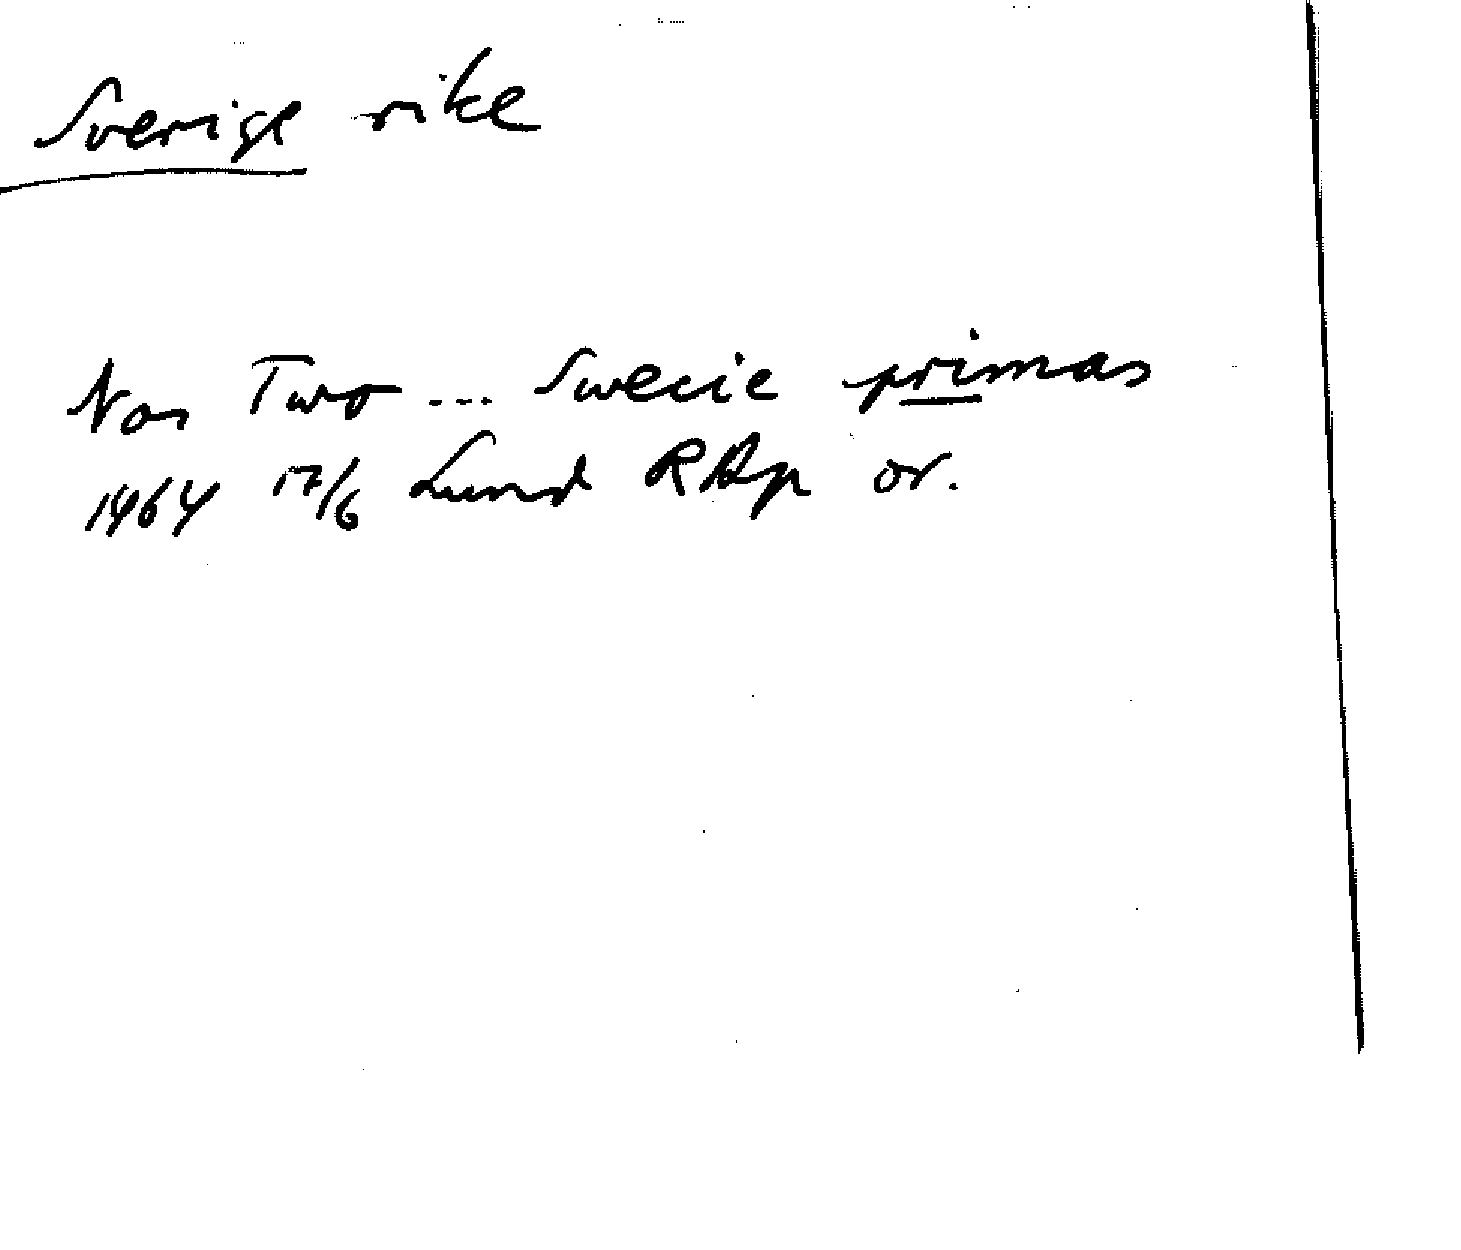 Sverige rike
Nos Tuvo ... Swecie primas
1464 17/6 Lund RAp or.